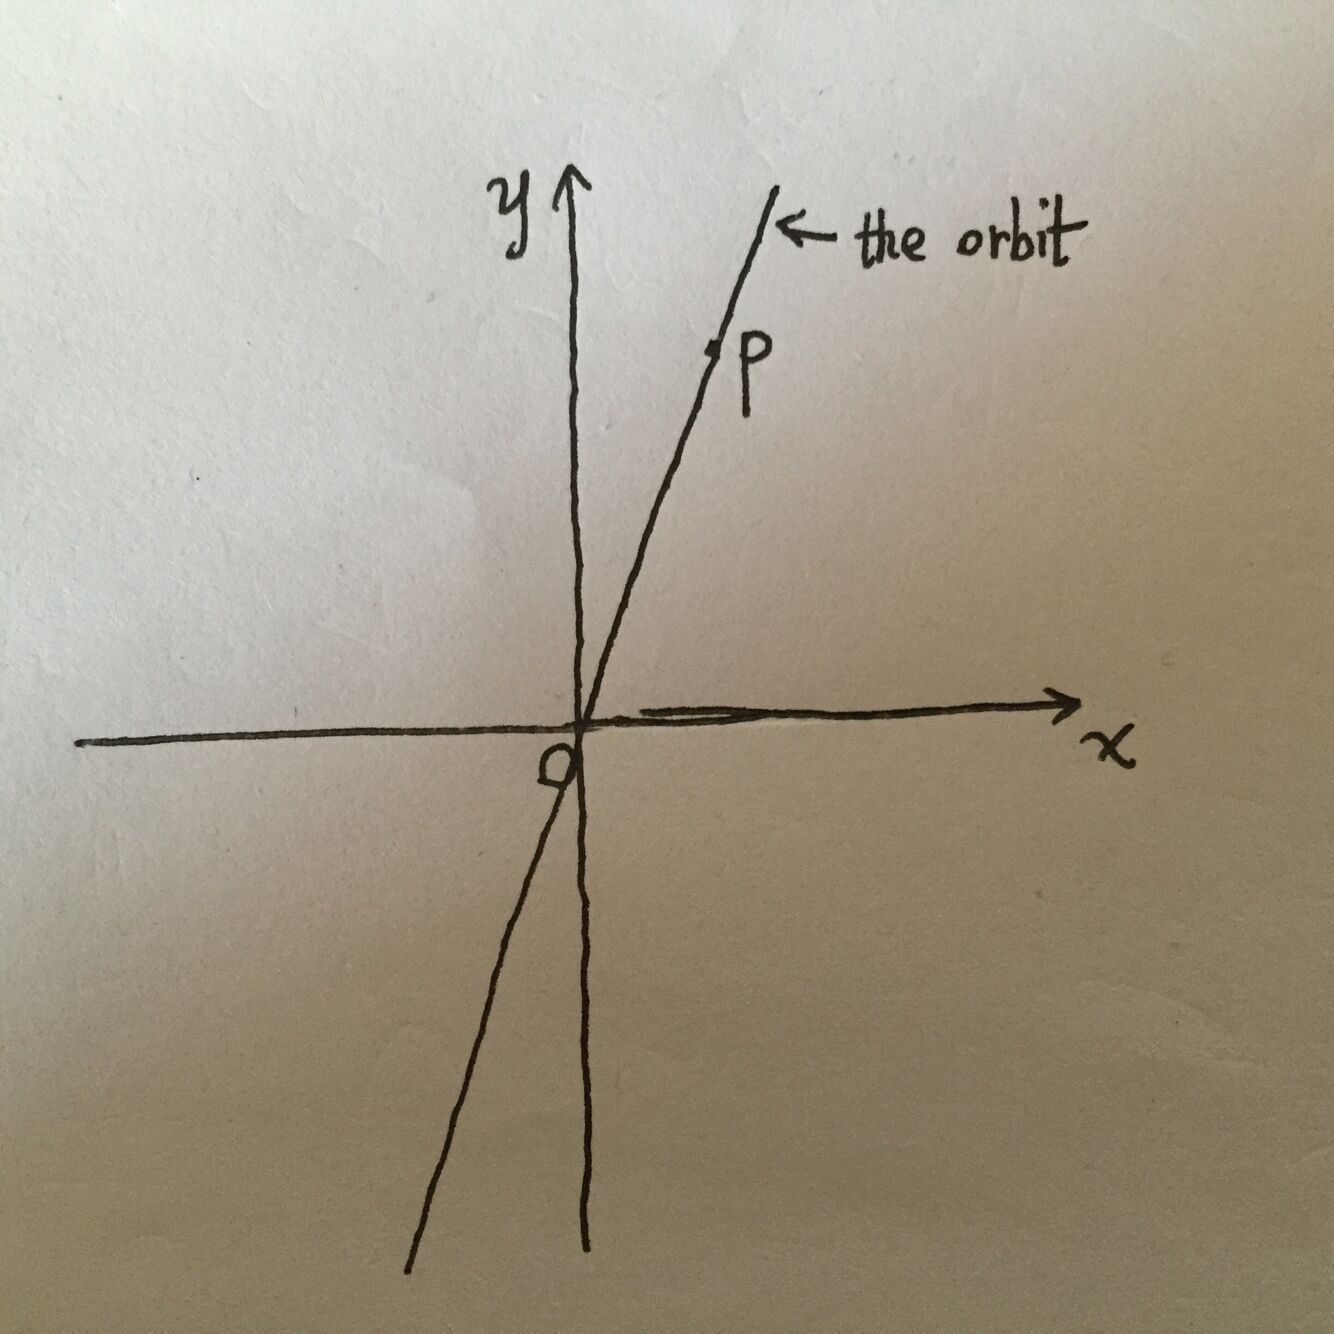 y
← the orbit
P
O
x